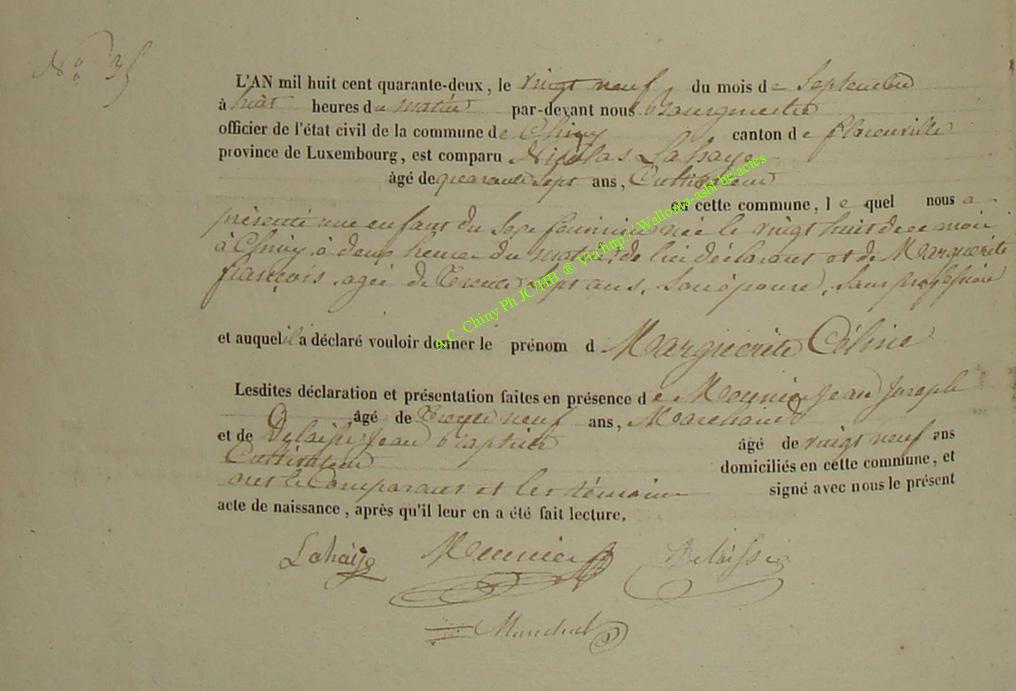 N° 35
L'AN mil huit cent quarante-deux, le vingt neuf du mois de Septembre
à huit heures du matin par-devant nous Bourgmestre
officier de l'état civil de la commune de Chiny canton de florenville
province de Luxembourg, est comparu Nicolas Lahaye
âgé de quarante sept ans, Cultivateur
en cette commune, le quel nous a
présenté une enfant du Sexe féminin née le vingt huit de ce mois
à Chiny, à deux heures du matin, de lui déclarant et de Marguerite
françois, agée de Trente sept ans, son épouse, Sans profession
et auquel il a déclaré vouloir donner le prénom d Marguerite Céline
Lesdites déclaration et présentation faites en présence de Meunier Jean Joseph
âgé de Trente neuf ans, Marchand
et de Delaisse Jean Baptiste âgé de vingt neuf ans
Cultivateur domiciliés en cette commune, et
ont le Comparant et les témoins signé avec nous le présent
acte de naissance, après qu'il leur en a été fait lecture,
Lahaye Meunier Delaisse
A.C. Chiny Ph JC HB ® Via http://Wallonia-asbl.be/actes